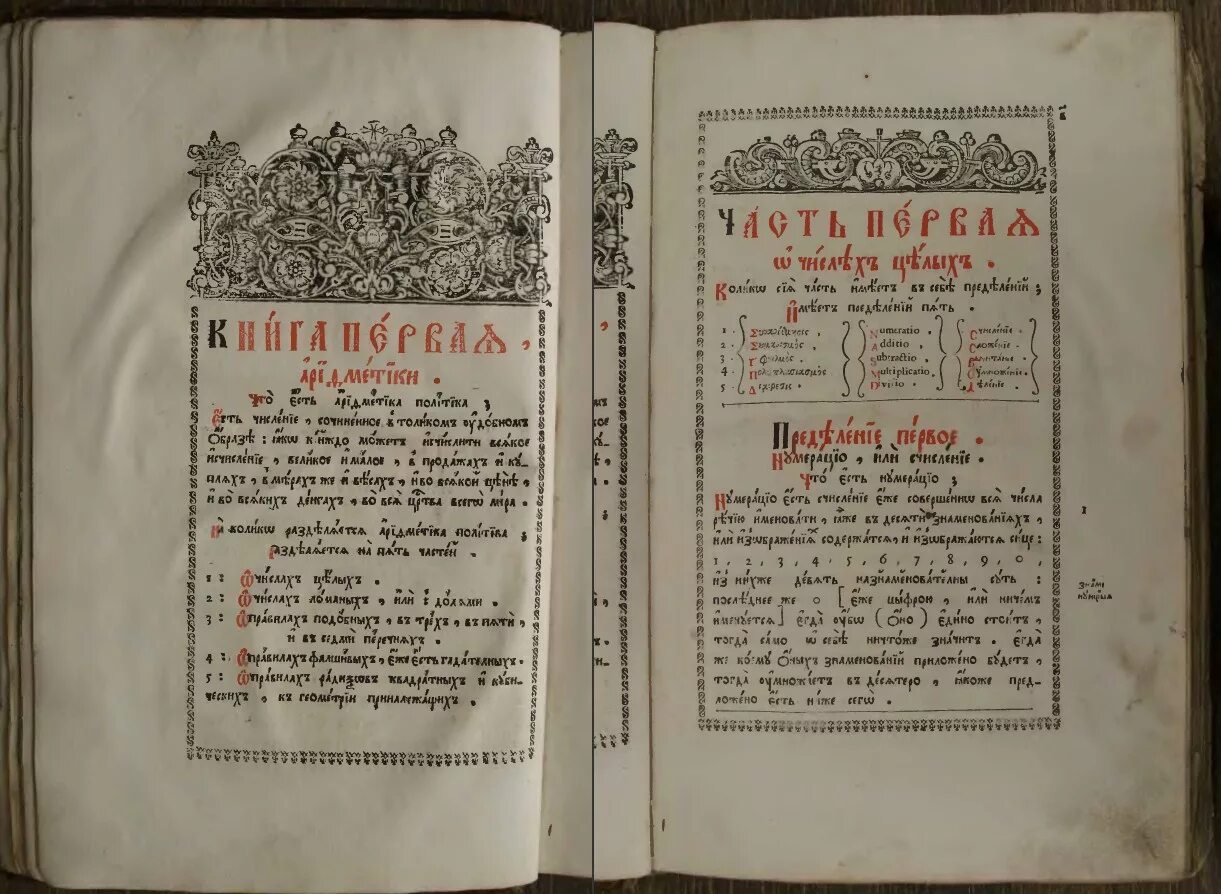 Кни́га пе́рваѧ,
а҆рїѳме́тїки.
Что̀ є҆́сть а҆рїѳме́тїка полїтїка;
Є҆́сть численїе, сочиненное в толикомъ оудобномъ
ѻ҆бразѣ: ꙗ҆́кѡ кі́йждо можетъ исчислити всѧкое
исчисленїе, великое и малое, в продажахъ и ку-
плѧхъ, в мѣрахъ же и вѣсахъ, и во всѧкой цѣнѣ,
и во всѧкихъ денгахъ, во всѧ црⷭ҇тва всегѡ мира.
На коликѡ раздѣлѧетсѧ а҆рїѳме́тїка полїтїка;
раздѣлѧетсѧ на пѧть частей.
1: Ѡ числахъ цѣлыхъ.
2: Ѡ числахъ ломаныхъ, или с долѧми.
3: Ѡ правилахъ подобныхъ, в трехъ, в пѧти,
и в седми перечнѧхъ.
4: Ѡ правилахъ фалшивыхъ, є҆́же є҆́сть гадателныхъ.
5: Ѡ правилахъ радїѯѡвъ квадратныхъ и куби-
ческихъ, къ геометрїи приналежащихъ.
Ча́сть пе́рваѧ
ѡ҆ чи́слѣхъ цѣ́лыхъ.
Коликѡ сїѧ̀ часть имѣетъ в себѣ предѣленїй;
И҆мѣетъ предѣленїй пѧть.
1. Numeratio. Счисленїе.
2. Additio. Сложенїе.
3. Subtractio. Вычитанїе.
4. Multiplicatio. Оумноженїе.
5. Divitio. Дѣленїе.
Предѣле́нїе пе́рвое.
Нумерацїо, и҆лѝ счисленїе.
Что̀ є҆́сть нумерацїо;
Нумерацїо є҆́сть счисленїе є҆́же совершеннѡ всѧ числа
рѣчїю именовати, ꙗ҆́же в десѧти знаменованїѧхъ,
и҆лѝ и҆з̾ѡбраженїѧхъ содержатсѧ, и и҆з̾ѡбражаютсѧ сице:
1, 2, 3, 4, 5, 6, 7, 8, 9, 0,
и҆з̾ нихже девѧть назнаменователны суть:
послѣднее же 0 [є҆́же цыфрою, и҆лѝ ничѣмъ
именуетсѧ] є҆гда̀ оу҆́бѡ (ѻ҆но̀) є҆ди́но стоитъ,
тогда само ѡ҆ себѣ̀ ничтоже значитъ. є҆гда̀
же коемꙋ ѻ҆ныхъ знаменованїй приложено бꙋдетъ,
тогда оу҆множаетъ в десѧтеро, ꙗ҆́коже пред-
ложено є҆́сть ниже сегѡ̀.